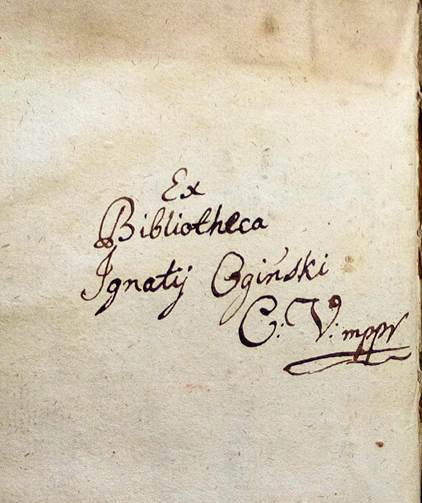 Ex
Bibliotheca
Ignatij Ogiński
C. V. mppr